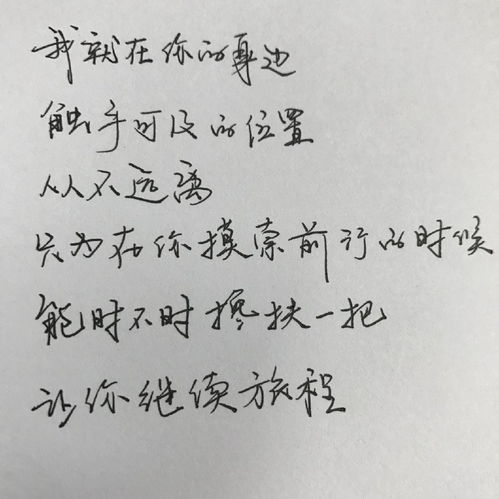 我就在你的身边
触手可及的位置
从不远离
只为在你摸索前行的时候
能时不时搀扶一把
让你继续旅程